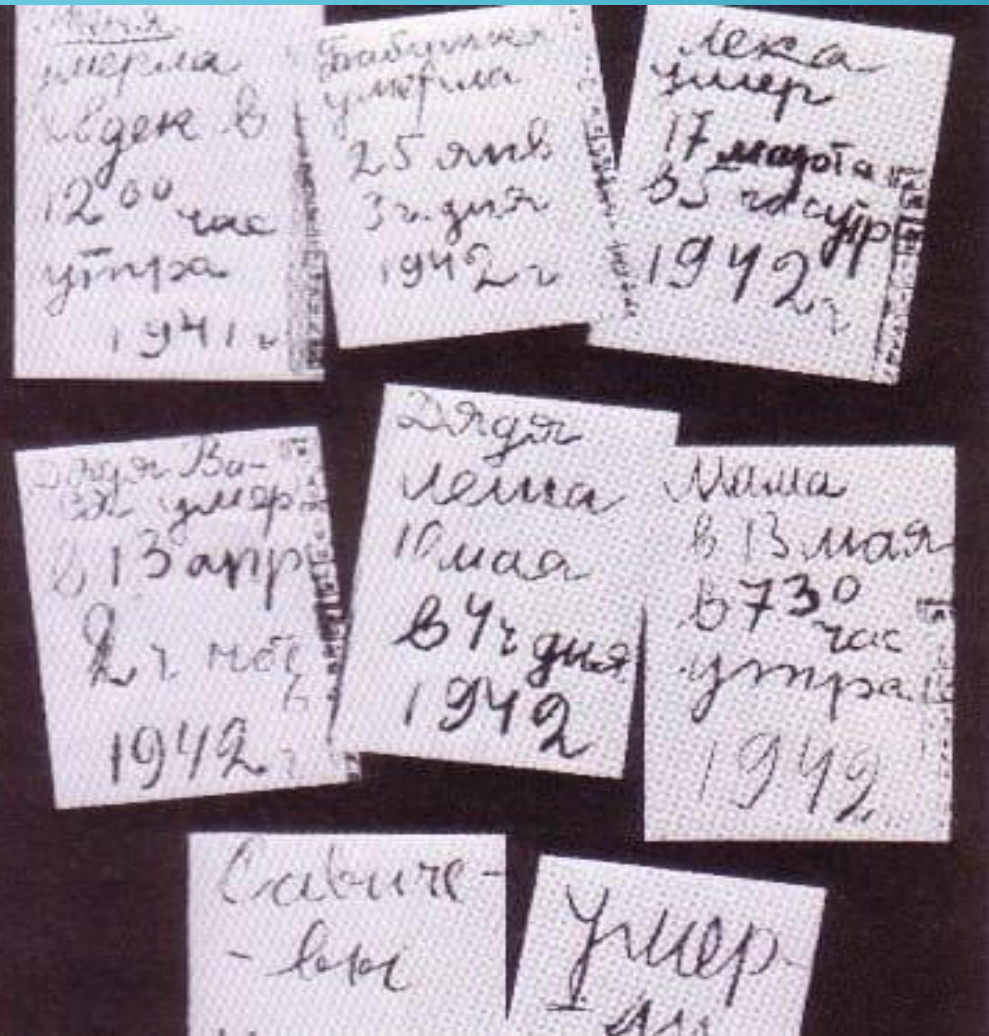 Женя
умерла
28 дек в
12 00 час
утра
1941 г
Бабушка
умерла
25 янв
3 ч. дня
1942 г
Лека
умер
17 марта
в 5 час утр
1942 г
Дядя Ва-
ся умер
в 13 апр
2 ч ноч
1942 г
Дядя
Леша
10 мая
в 4 ч дня
1942
Мама
в 13 мая
в 7 30
час
утра
1942
Савиче-
-вы
Умер-
ли